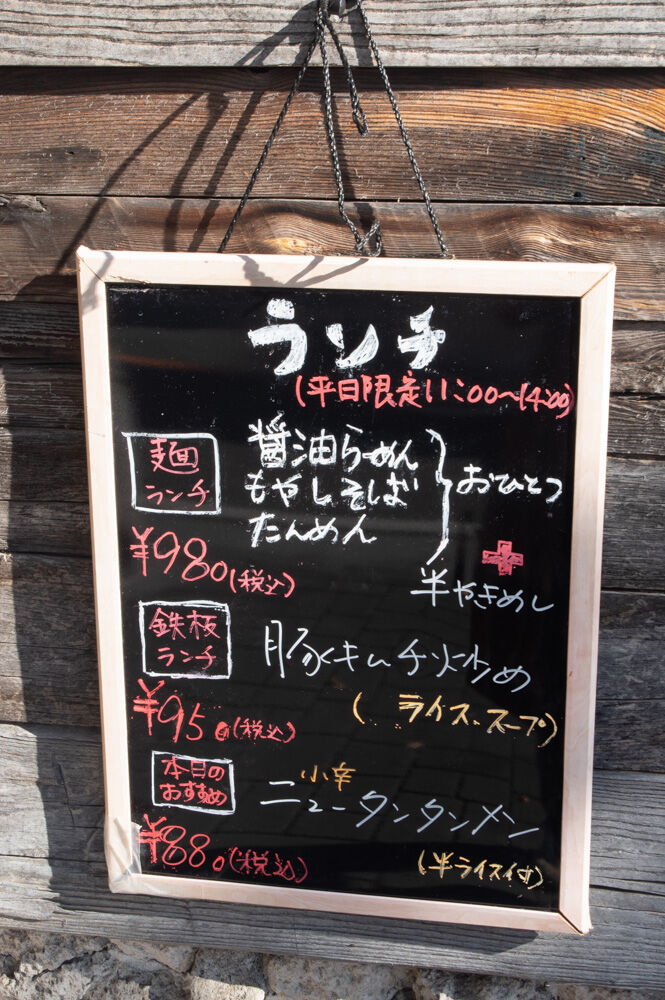 ランチ
(平日限定11:00〜14:00)
麺
ランチ
醤油らーめん
もやしそば
たんめん
おひとつ
+
半やきめし
¥980(税込)
鉄板
ランチ
豚キムチ炒め
¥950(税込)
(ライス、スープ)
本日の
おすすめ
小辛
ニュータンタンメン
¥880(税込)
(半ライス付)